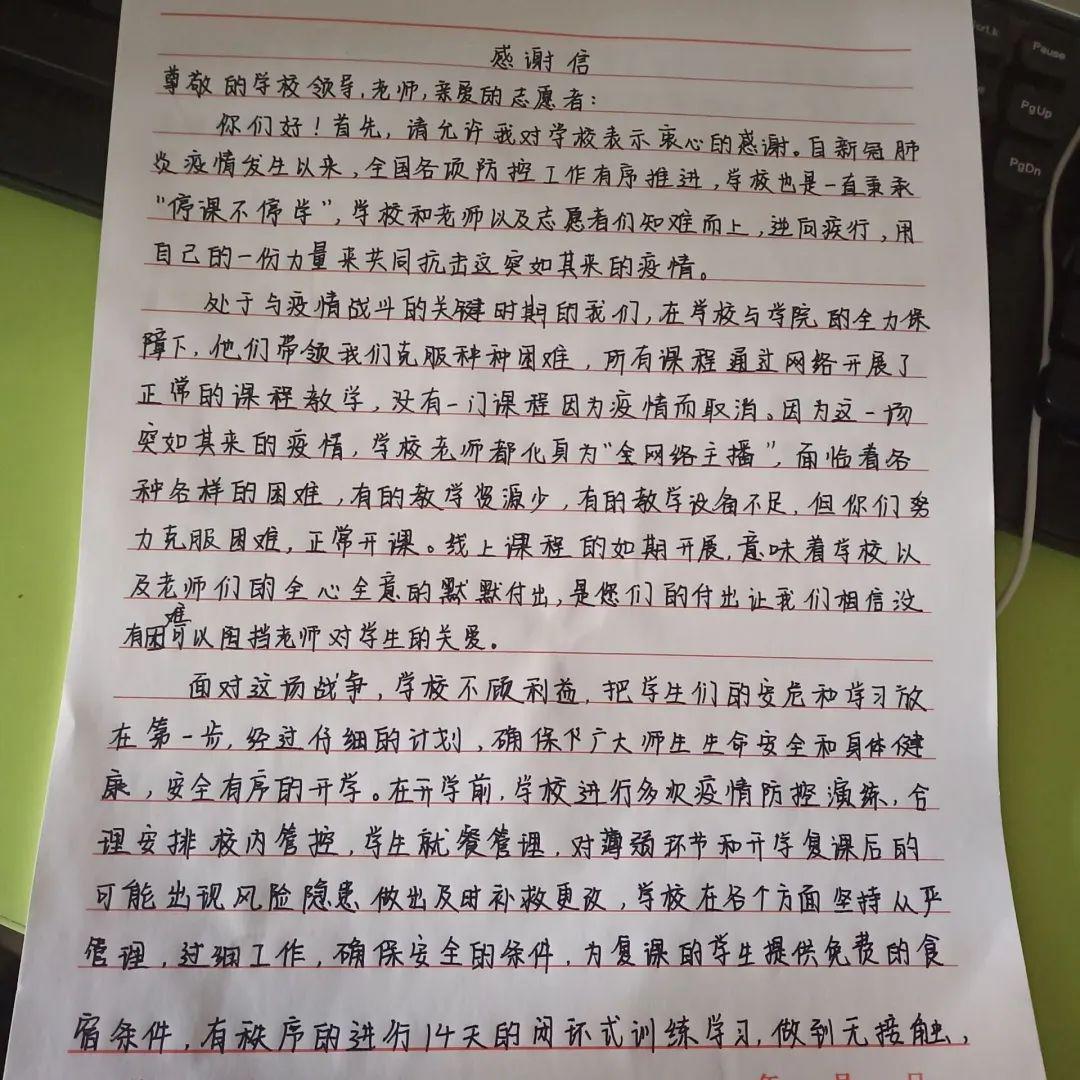 感谢信
尊敬的学校领导,老师,亲爱的志愿者:
你们好!首先,请允许我对学校表示衷心的感谢。自新冠肺
炎疫情发生以来,全国各项防控工作有序推进,学校也是一直秉承
"停课不停学",学校和老师以及志愿者们知难而上,逆向疾行,用
自己的一份力量来共同抗击这突如其来的疫情。
处于与疫情战斗的关键时期的我们,在学校与学院的全力保
障下,他们带领我们克服种种困难,所有课程通过网络开展了
正常的课程教学,没有一门课程因为疫情而取消。因为这一场
突如其来的疫情,学校老师都化身为"全网络主播",面临着各
种各样的困难,有的教学资源少,有的教学设备不足,但你们努
力克服困难,正常开课。线上课程的如期开展,意味着学校以
及老师们的全心全意的默默付出,是您们的付出让我们相信没
有困难可以阻挡老师对学生的关爱。
面对这场战争,学校不顾利益,把学生们的安危和学习放
在第一步,经过仔细的计划,确保下广大师生生命安全和身体健
康,安全有序的开学。在开学前,学校进行多次疫情防控演练,合
理安排校内管控,学生就餐管理,对薄弱环节和开学复课后的
可能出现风险隐患做出及时补救更改,学校在各个方面坚持从严
管理,过细工作,确保安全的条件,为复课的学生提供免费的食
宿条件,有秩序的进行14天的闭环式训练学习,做到无接触,
年 月 日
Pause
PgUp
PgDn